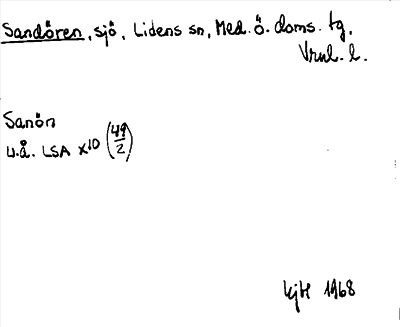 Sandören, sjö, Lidens sn, Med. ö. doms. tg,
Vrnl. l.
Sanön
u.å. LSA X10 (49/2)
1968